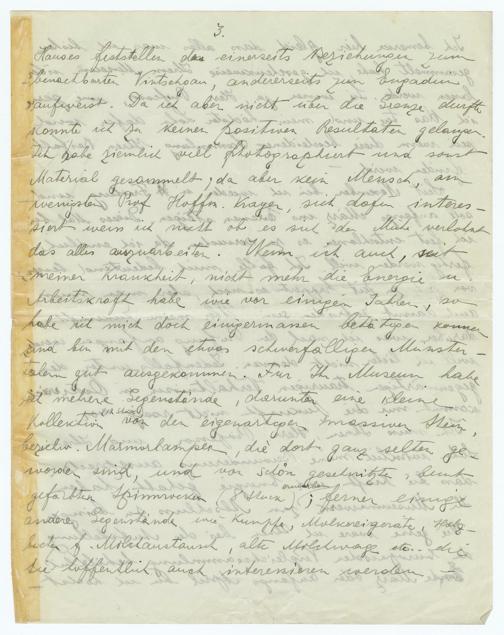 3.
Hauses feststellen das einerseits Beziehungen zum
benachbarten Vintschgau, andererseits zum Engadin
aufweist. Da ich aber nicht über die Grenze durfte
konnte ich zu keinen positiven Resultaten gelangen.
Ich habe ziemlich viel photographiert und sonst
Material gesammelt, da aber kein Mensch, am
wenigsten Prof Hoffm. Krayer, sich dafür interes-
siert weiss ich nicht ob es sich der Mühe verlohnt
das alles auszuarbeiten. Wenn ich auch, seit
meiner Krankheit, nicht mehr die Energie u
Arbeitskraft habe wie vor einigen Jahren, so
habe ich mich doch einigermassen betätigen können
und bin mit den etwas schwerfälligen Münster-
talern gut ausgekommen. Für Ihr Museum habe
ich mehrere Gegenstände, darunter eine kleine
Kollektion von den eigenartigen massiven Stein,
bezieh. Marmorlampen, die dort ganz selten ge-
worden sind, und von schön geschnitzten, bunt
gefärbten Spinnrocken ; ferner einige
andere Gegenstände wie Kümpfe, Molkereigeräte,
f. Milchaustausch, alte Milchwage etc. die
Sie hoffentlich auch interessieren werden -